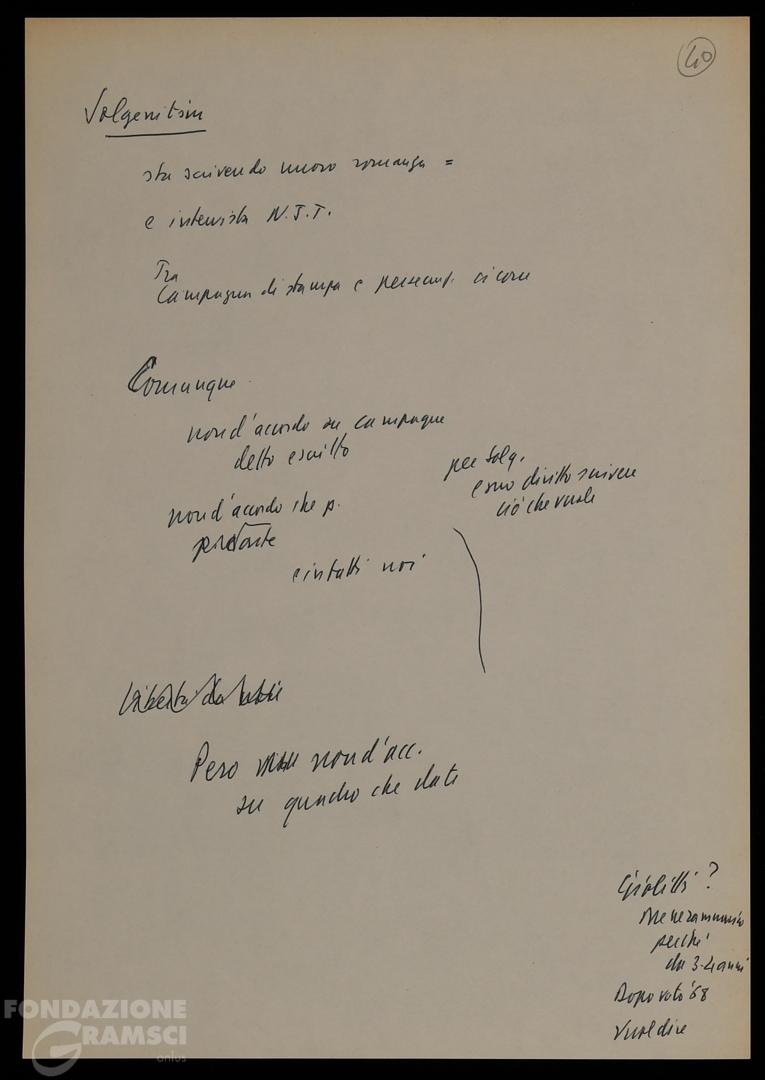 40
Solgenitsin
sta scrivendo nuovo romanzo =
e intervista N.Y.T.
Tra
Campagna di stampa e persecuz. ci corre
Comunque
non d'accordo su campagne
detto e scritto
non d'accordo che p.
e infatti noi
per Solg.
e suo diritto scrivere
ciò che vuole
Libertà da
Pero non d'acc.
su quadro che date
Giolitti?
Me ne rammarico
perché
da 3-4 anni
Dopo voto '68
Vuol dire
FONDAZIONE
GRAMSCI
onlus